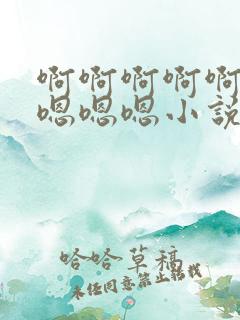 啊啊啊啊啊
嗯嗯嗯小说
哈哈草稿
未经同意禁止转载